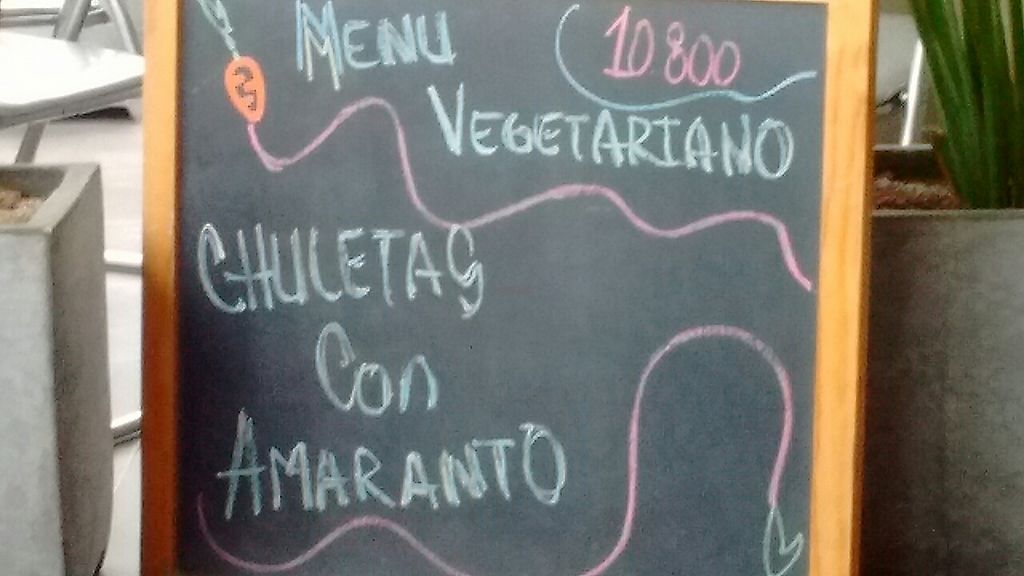 MENU 10 800
VEGETARIANO
CHULETAS
Con
AMARANTO